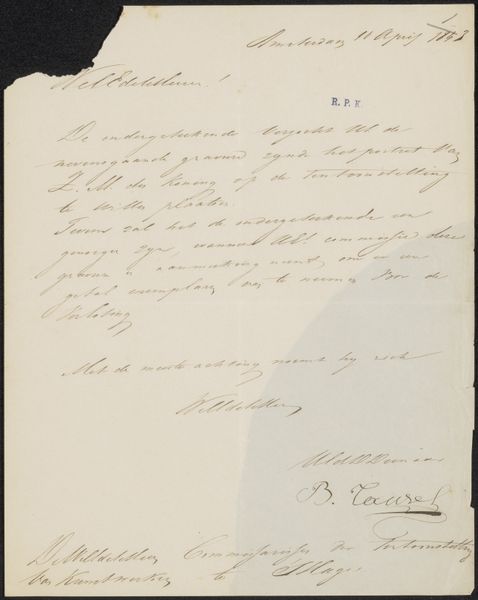 1
Amsterdam 16 April 1853
WelEdeleHeeren!
R.P.K.
De ondergeteekende verzoekt UE de
nevensgaande gravure zynde het portret van
Z. M. den Koning op de tentoonstelling
te willen plaatsen.
Tevens zal het de ondergeteekende een
genoegen zyn, wanneer UE! commissie deze
gravure in aanmerking neemt, om er een
getal exemplaren van te nemen voor de
Verloting
Met de meeste achting noemt hy zich
WelEdeleHeeren
UEd Dienaar
B. Taurel
De WelEdeleHeeren Commissarissen der Tentoonstelling
van Kunstwerken te 's Hage